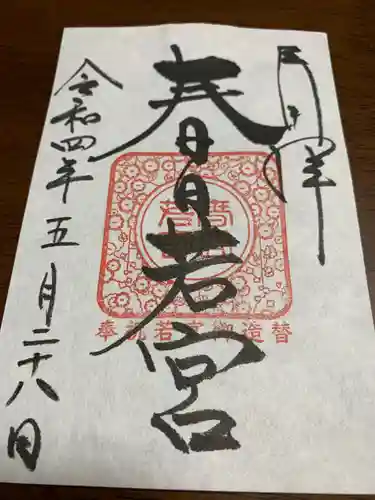 月拝
春日若宮
奉祝若宮御造替
令和四年五月二十八日